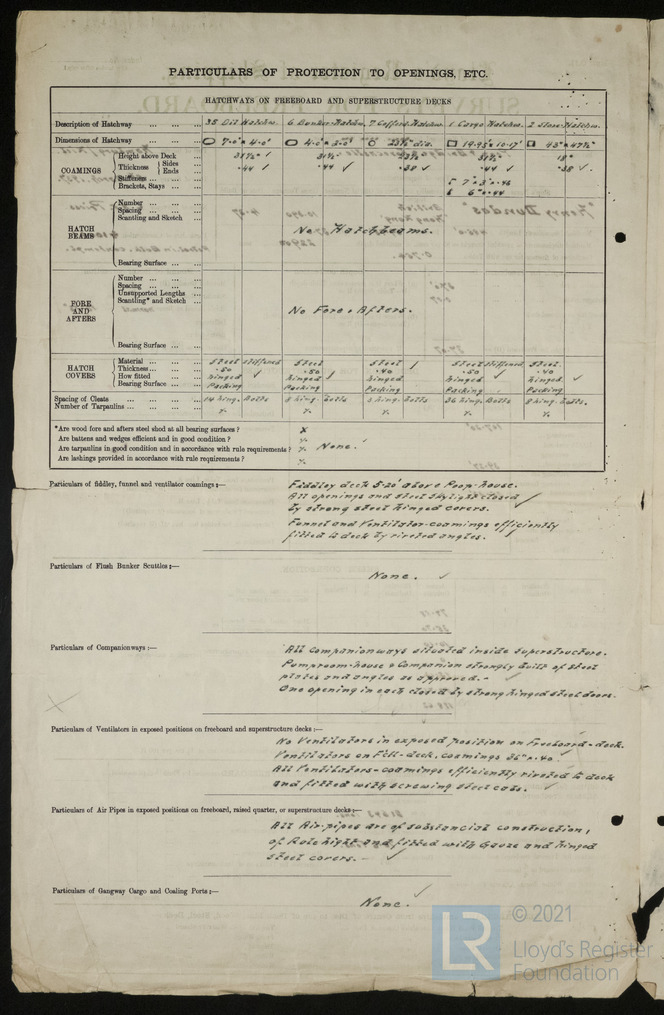 PARTICULARS OF PROTECTION TO OPENINGS, ETC.
HATCHWAYS ON FREEBOARD AND SUPERSTRUCTURE DECKS
Description of Hatchway ... ... ... 35 Oil Hatches. 6 Bunker Hatches, 7 Cofferd. Hatches. 1 Cargo Hatches. 2 Stores Hatches.
Dimensions of Hatchway ... ... ... 7.0' × 4.0' 4.0' × 3.0' dia. 19.95 × 10.17'
COAMINGS
Height above Deck 31½" 31½" 31½" 18"
Thickness Sides Ends .44 .44 .38 .44 .38
Stiffeners ... ... ... 7" × 3" × .46
Brackets, Stays ... ... 6" × .44
HATCH BEAMS
Number ... ... ...
Spacing ... ... ...
Scantling and Sketch ...
No Hatchbeams.
Bearing Surface ... ...
FORE AND AFTERS
Number ... ... ...
Spacing ... ... ...
Unsupported Lengths ...
Scantling* and Sketch ...
No Fore & Afters.
Bearing Surface ... ...
HATCH COVERS
Material ... ... ... Steel stiffened Steel Steel Steel stiffened Steel
Thickness ... ... ... .50 .50 .40 .50 .40
How fitted ... ... hinged hinged hinged hinged hinged
Bearing Surface ... ... Packing Packing Packing Packing Packing
Spacing of Cleats ... ... ... 14 hing. Bolts 8 hing. bolts 8 hing. bolts 36 hing. Bolts 8 hing. bolts.
Number of Tarpaulins ... ... ...
*Are wood fore and afters steel shod at all bearing surfaces ?
Are battens and wedges efficient and in good condition ?
Are tarpaulins in good condition and in accordance with rule requirements ? None.
Are lashings provided in accordance with rule requirements ?
Particulars of fiddley, funnel and ventilator coamings :—
Fiddley deck 5.20' above Poop-house.
All openings and steel skylight closed
by strong steel hinged covers.
Funnel and Ventilator-coamings efficiently
fitted to deck by riveted angles.
Particulars of Flush Bunker Scuttles :—
None.
Particulars of Companionways :—
All Companionways situated inside superstructure.
Pumproom-house & Companion strongly built of steel
plates and angles as approved.-
One opening in each closed by strong hinged steel doors.
Particulars of Ventilators in exposed positions on freeboard and superstructure decks :—
No Ventilators in exposed position on Freeboard-deck.
Ventilators on deck, coamings 36" × .40
All Ventilators-coamings efficiently riveted to deck
and fitted with screwing steel caps.
Particulars of Air Pipes in exposed positions on freeboard, raised quarter, or superstructure decks :—
All Air-pipes are of substancial construction,
of Rule hight and fitted with Gauze and hinged
steel covers. —
Particulars of Gangway Cargo and Coaling Ports :—
None.
LR
© 2021
Lloyd's Register
Foundation